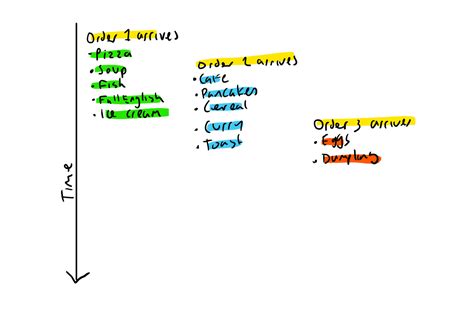 Order 1 arrives
• Pizza
• Soup
• Fish
• Full English
• Ice cream
Order 2 arrives
• Cake
• Pancakes
• Cereal
• Curry
• Toast
Order 3 arrives
• Eggs
• Dumplings
Time